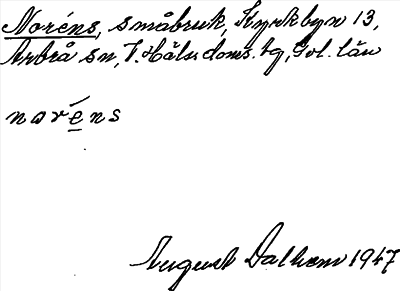 Noréns, småbruk, Kyrkbyn 13,
Arbrå sn, V. Häls. doms. bg, Gvl. län
naréns
August Dalhem 1947